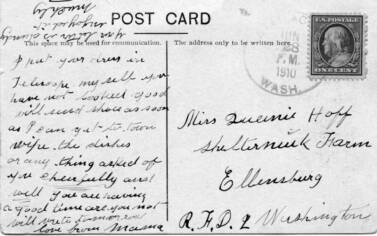 POST CARD
This space may be used for communication.
The address only to be written here.
I put your dress in
Telescope my self you
have not looked good
will send shoes as soon
as I can get to town
wipe the dishes
or any thing asked of
you cheerfully and
will You are having
a good time are you not
will write tomorrow
love from Mama
your letter is
enjoyed it
JUN
28
P.M.
1910
WASH.
U.S. POSTAGE
ONE CENT
Miss Queenie Hoff
Shelternuk Farm
Ellensburg
R.F.D. 2 Washington